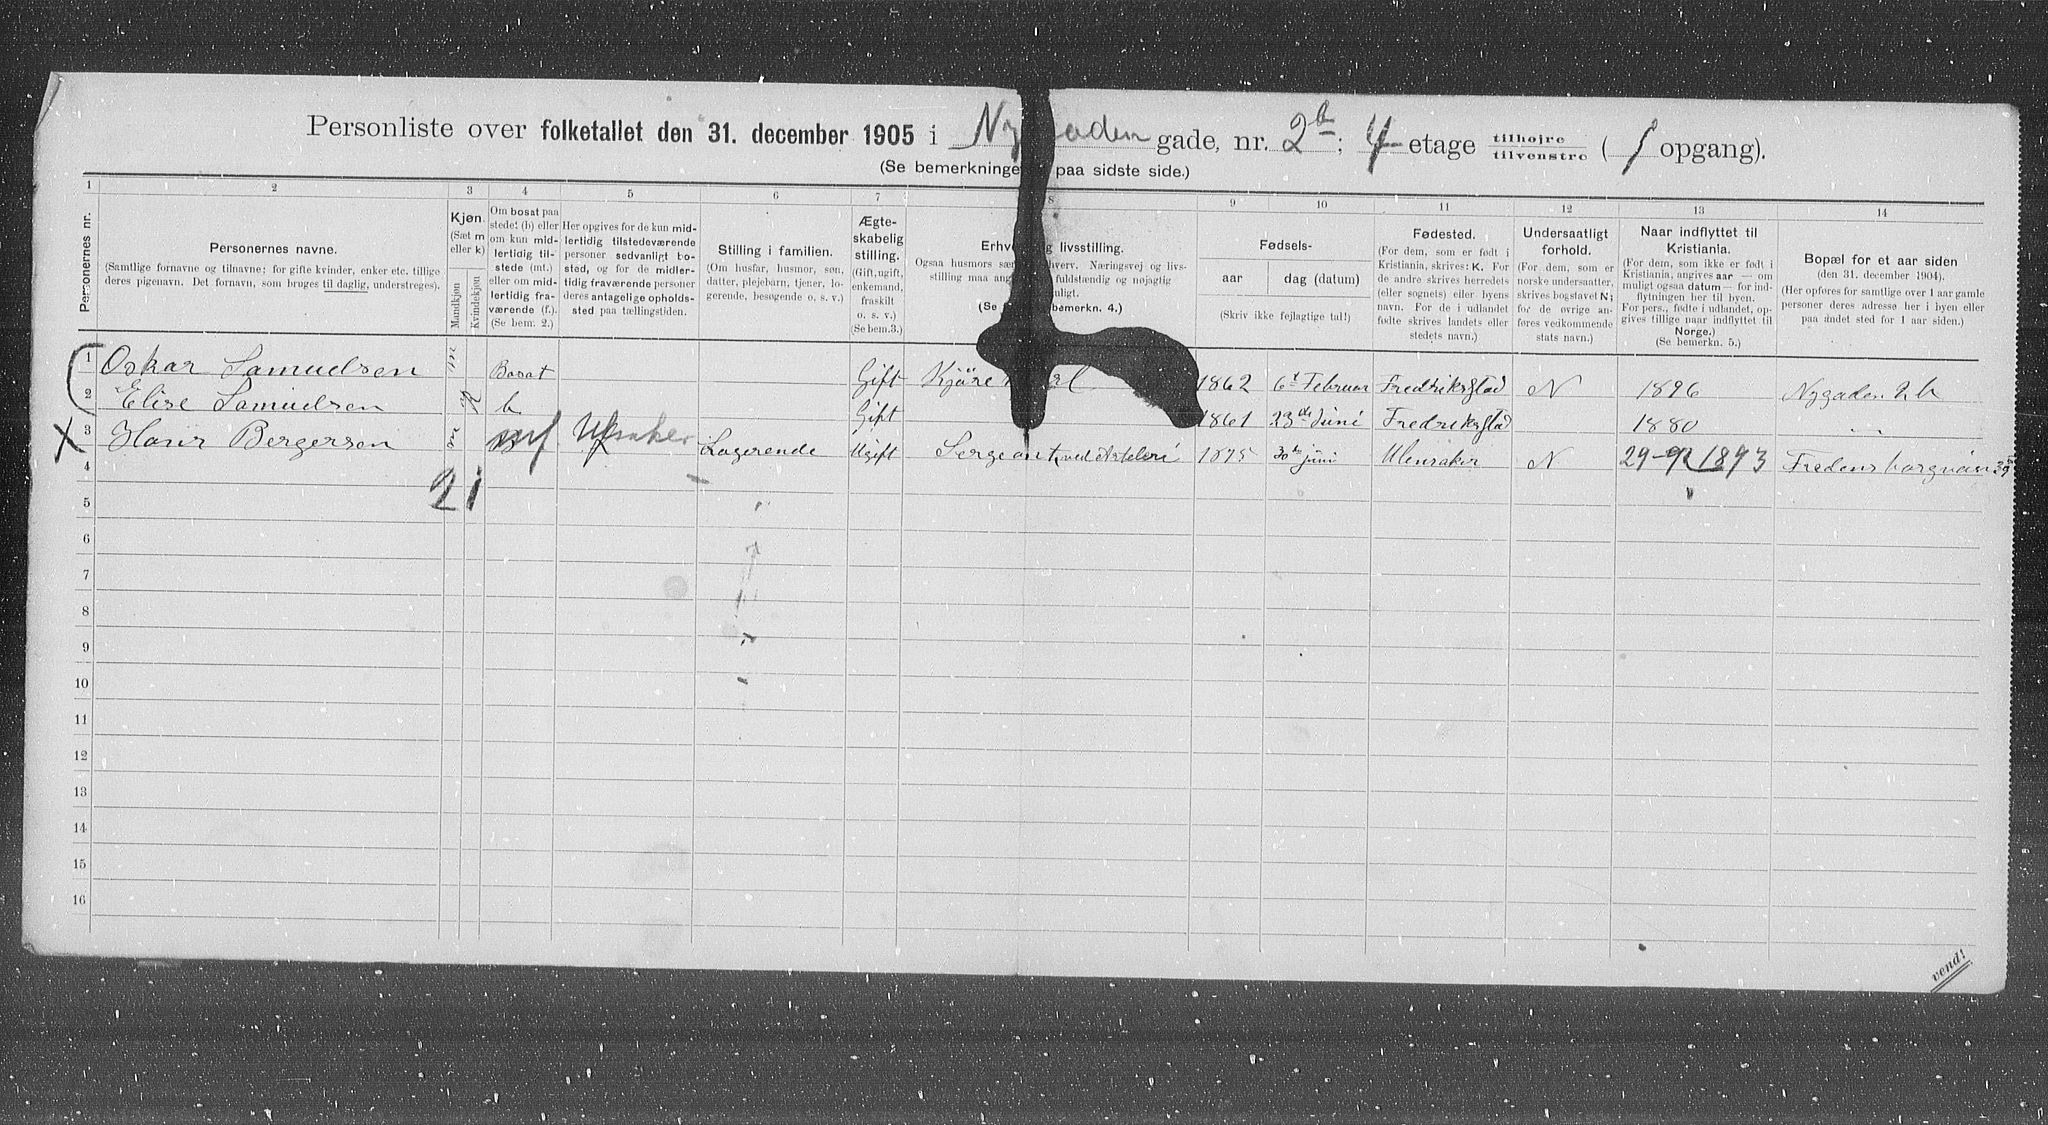 Personliste over folketallet den 31. december 1905 i Nygaden gade, nr. 2b; 4 etage tilhøjre tilvenstre ( 1 opgang).
(Se bemerkninge paa sidste side.)
1 2 3 4 5 6 7 8 9 10 11 12 13 14
Personernes nr.
Personernes navne.
(Samtlige fornavne og tilnavne; for gifte kvinder, enker etc. tillige
deres pigenavn. Det fornavn, som bruges til daglig, understreges).
Kjøn.
(Sæt m
eller k)
Mandkjøn
Kvindekjøn
Om bosat paa
stedet (b) eller
om kun mid-
lertidig til-
stede (mt.)
eller om mid-
lertidig fra-
værende (f.).
(Se bem. 2.)
Her opgives for de kun mid-
lertidig tilstedeværende
personer sedvanligt bo-
sted, og for de midler-
tidig fraværende personer
deres antagelige opholds-
sted paa tællingstiden.
Stilling i familien.
(Om husfar, husmor, søn,
datter, plejebarn, tjener, lo-
gerende, besøgende o. s. v.)
Ægte-
skabelig
stilling.
(Gift, ugift,
enkemand,
fraskilt
o. s. v.)
(Se bem. 3.)
Erhverv og livsstilling.
Ogsaa husmors sæ hverv. Næringsvej og livs-
stilling maa ang fuldstændig og nøjagtig
nligt.
(Se bemerkn. 4.)
Fødsels-
aar
dag (datum)
(Skriv ikke fejlagtige tal!)
Fødested.
(For dem, som er født i
Kristiania, skrives: K. For
de andre skrives herredets
(eller sognets) eller byens
navn. For de i udlandet
fødte skrives landets eller
stedets navn.)
Undersaatligt
forhold.
(For dem, som er
norske undersaatter,
skrives bogstavet N;
for de øvrige an-
føres vedkommende
stats navn.)
Naar indflyttet til
Kristiania.
(For dem, som ikke er født i
Kristiania, angives aar — om
muligt ogsaa datum — for ind-
flytningen her til byen.
For pers., fødte i udlandet, op-
gives tillige naar indflyttet til
Norge.)
(Se bemerkn. 5.)
Bopæl for et aar siden
(den 31. december 1904).
(Her opføres for samtlige over 1 aar gamle
personer deres adresse her i byen eller
paa andet sted for 1 aar siden.)
1 Oskar Samuelsen m Bosat Gift Kjøre 1862 6t Februar Fredrikstad N 1896 Nygaden 2b
2 Elise Samuelsen k b Gift 1861 23de Juni Fredrikstad 1880 — „ —
3 Hans Bergersen m Logerende Ugift Sergeant ved Artileri 1875 30te juni Ulensaker N 1893
4
21
5
6
7
8
9
10
11
12
13
14
15
16
vend!